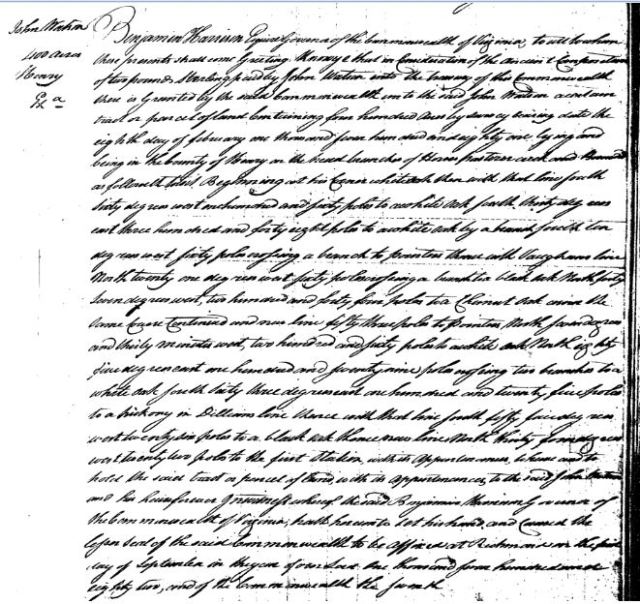 John Watson
400 acres
Henry
Exa
Benjamin Harrison Esquire Governor of the Commonwealth of Virginia to all to whom
these presents shall come Greeting Know ye that in Consideration of the ancient Composition
of two pounds Sterling paid by John Watson into the treasury of this Commonwealth
there is Granted by the said Commonwealth unto the said John Watson a certain
tract or parcel of land Containing four hundred acres by survey bearing date the
eighth day of february one thousand seven hundred and eighty one lying and
being in the County of Henry on the head branches of Horse pasture creek and bounded
as followeth towit Beginning at his Corner white oak then with that line South
Sixty degrees west one hundred and sixty poles to a white oak South thirty degrees
east three hundred and forty eight poles to a white oak by a branch South ten
degrees west sixty poles crossing a branch to pointers thence with line
North twenty one degrees west sixty poles crossing a branch to a black oak North forty
Seven degrees west, two hundred and forty four poles to a Chesnut oak on the
same Course Continued and new line fifty three poles to Pointers North four degrees
and thirty minutes west, two hundred and sixty poles to a white oak North eighty
five degrees east one hundred and twenty nine poles crossing two branches to a
white oak South Sixty three degrees east one hundred and twenty five poles
to a hickory in line thence with that line South fifty five degrees
west twenty six poles to a black oak thence new line North thirty four degrees
west twenty two poles to the first Station, with its Appurtenances, to have and to
hold the said tract or parcel of land, with its appurtenances, to the said John Watson
and his heirs forever In witness whereof the said Benjamin Harrison Governor of
the Commonwealth of Virginia, hath hereunto set his hand, and Caused the
lesser Seal of the said Commonwealth to be affixed at Richmond on the first
day of September in the year of our Lord One thousand seven hundred and
eighty two, and of the Commonwealth the seventh